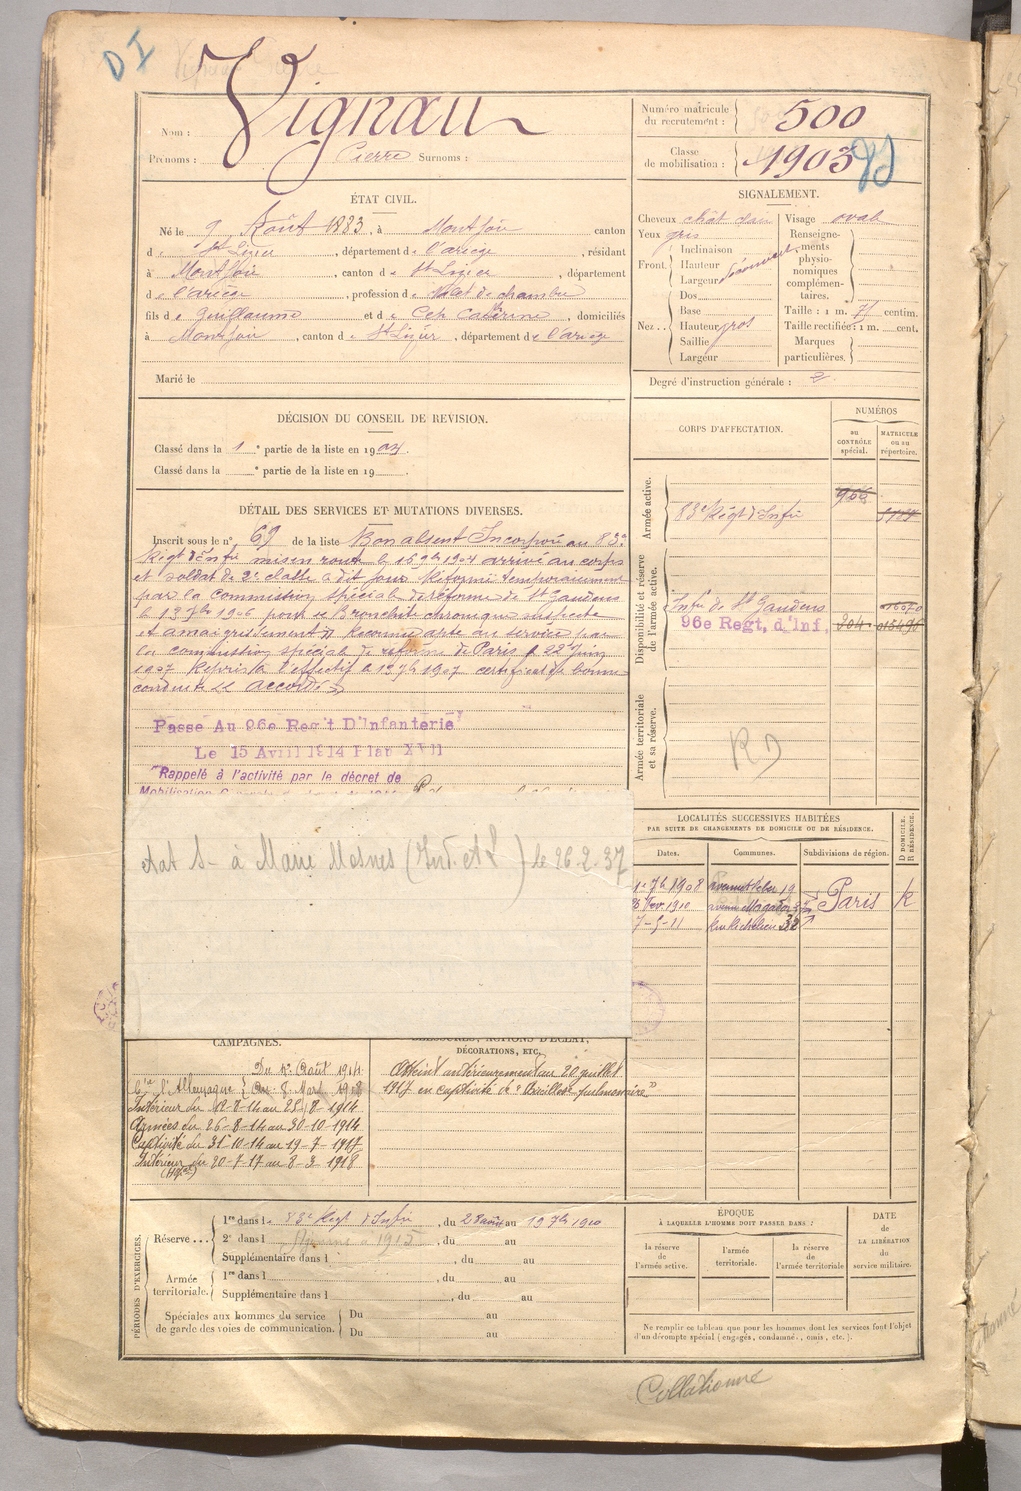 D I
Nom : Vignau
Prénoms : Pierre Surnoms :
Numéro matricule du recrutement : 500
Classe de mobilisation : 1903
ÉTAT CIVIL.
Né le 9 Août 1883, à Montjoie canton
d e St Lizier, département d e l'ariège, résidant
à Montjoie, canton d e St Lizier, département
d e l'ariège, profession d e Valet de chambre
fils d e Guillaume et d e Cep Catherine, domiciliés
à Montjoie, canton d e St Lizier, département d e l'ariège
Marié le
SIGNALEMENT.
Cheveux chât clair Visage ovale
Yeux gris
Front. Inclinaison Hauteur Largeur
Nez.. Dos Base Hauteur gros Saillie Largeur
Renseignements physionomiques complémentaires.
Taille : 1 m. 71 centim.
Taille rectifiée : 1 m. cent.
Marques particulières.
Degré d'instruction générale : 2
DÉCISION DU CONSEIL DE REVISION.
Classé dans la 1 e partie de la liste en 1904.
Classé dans la e partie de la liste en 19 .
CORPS D'AFFECTATION.
NUMÉROS
au CONTRÔLE spécial.
MATRICULE ou au répertoire.
Armée active.
83e Régt d'Infie
Disponibilité et réserve de l'armée active.
Infie de St Gaudens
96e Regt, d'Inf, 204 015496
Armée territoriale et sa réserve.
R D
DÉTAIL DES SERVICES ET MUTATIONS DIVERSES.
Inscrit sous le n° 69 de la liste Bon absent Incorporé au 83e
Régt d'Infie mis en route le 16 9bre 1904 arrivé au corps
et soldat de 2e classe à dit jour Réformé temporairement
par la Commission spéciale de réforme de St Gaudens
le 19 7bre 1906 pour Bronchite chronique suspecte
et amaigrissement Reconnu apte au service par
la commission spéciale de réforme de Paris le 22 Juin
1907 Repris à l'effectif le 19 7bre 1907 certificat de bonne
conduite accordé
Passé Au 96e Reg't D'Infanterie
Le 15 Avril 1914 Plan XVII
Rappelé à l'activité par le décret de
etat s- à Marie Mesnes (Ind. et L) le 26-2-37
LOCALITÉS SUCCESSIVES HABITÉES
PAR SUITE DE CHANGEMENTS DE DOMICILE OU DE RÉSIDENCE.
Dates. Communes. Subdivisions de région. D DOMICILE. R RÉSIDENCE.
7b 1908 avenue Kleber 19
Fev. 1910 avenue Paris R
7-5-11 Rue Richelieu 32
CAMPAGNES.
Du 2 Août 1914
Cie l'Allemagne Au 8 Mars 1918
Intérieur du 12-8-14 au 25-8-1914
Armées du 26-8-14 au 30-10-1914
Captivité du 31-10-14 au 19-7-1917
Intérieur du 20-7-17 au 8-3-1918
BLESSURES, ACTIONS D'ÉCLAT,
DÉCORATIONS, ETC.
Atteint antérieurement au 20 juillet
1917 en captivité de "Bacillose pulmonaire"
PÉRIODES D'EXERCICES.
Réserve... 1re dans l e 83e Régt d'Infie, du 28 août au 19 7b 1910
2e dans l 1915, du au
Supplémentaire dans l , du au
Armée territoriale. 1re dans l , du au
Supplémentaire dans l , du au
Spéciales aux hommes du service de garde des voies de communication. Du au
Du au
ÉPOQUE
À LAQUELLE L'HOMME DOIT PASSER DANS :
la réserve de l'armée active.
l'armée territoriale.
la réserve de l'armée territoriale
DATE DE LA LIBÉRATION du service militaire.
Ne remplir ce tableau que pour les hommes dont les services font l'objet
d'un décompte spécial (engagés, condamné, omis, etc.).
Collationné